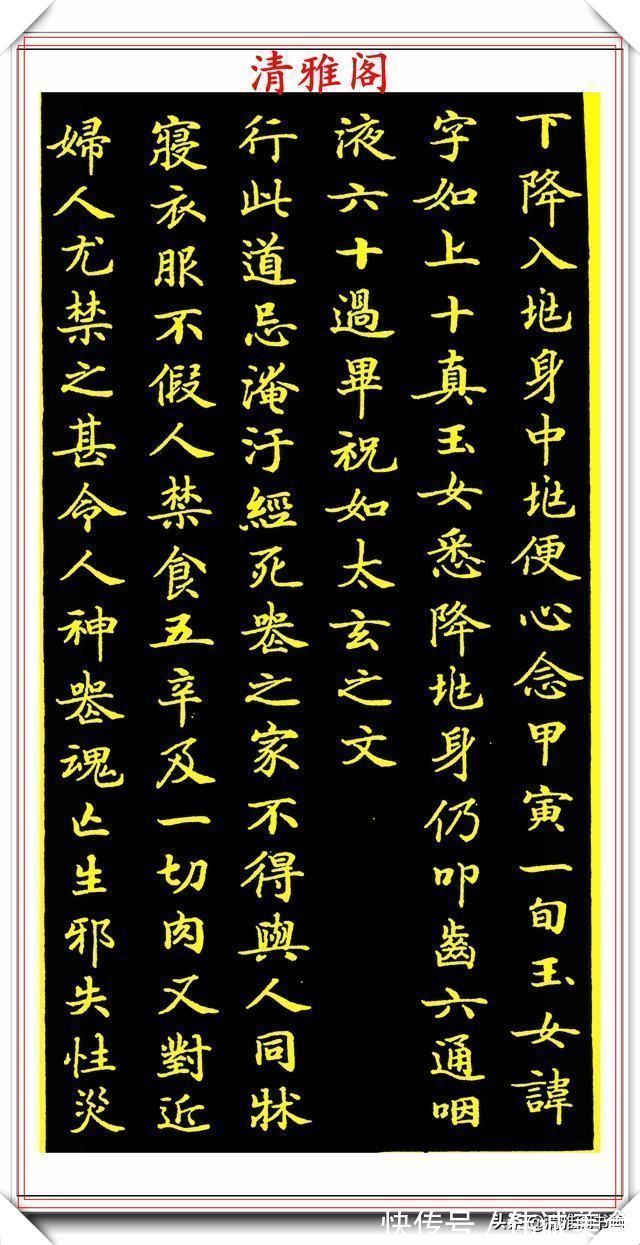 清雅阁
下降入兆身中兆便心念甲寅一旬玉女諱
字如上十真玉女悉降兆身仍叩齒六通咽
液六十過畢祝如太玄之文
行此道忌淹汙經死喪之家不得與人同牀
寢衣服不假人禁食五辛及一切肉又對近
婦人尤禁之甚令人神喪魂亡生邪失性災
快传号 /